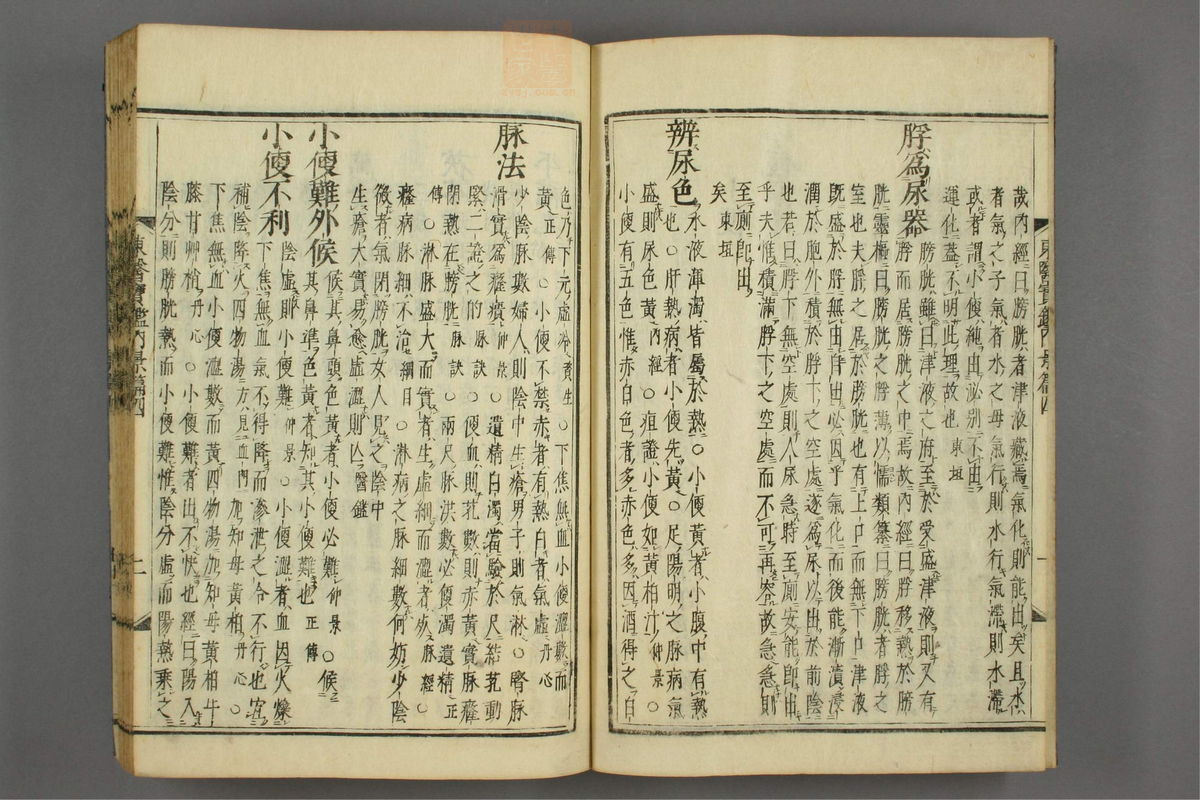 哉內經曰膀胱者津液藏焉氣化則能出矣且水
者氣之子氣者水之母氣行則水行氣滯則水滯
或者謂小便純由泌別不由
運化蓋不明此理故也 東垣
脬爲尿器
膀胱雖曰津液之府至於受盛津液則又有
脬而居膀胱之中焉故內經曰脬移熱於膀
胱靈樞曰膀胱之脬薄以懦類纂曰膀胱者脬之
室也夫脬之居於膀胱也有上口而無下口津液
既盛於脬無由自出必因乎氣化而後能漸漬浸
潤於胞外積於脬下之空處遂爲尿以出於前陰
也若曰脬下無空處則人尿急時至厠安能卽出
乎夫惟積滿脬下之空處而不可再容故急急則
至厠卽出
矣 東垣
辨尿色
水液渾濁皆屬於熱○小便黃者小腹中有熱
也○肝熱病者小便先黃○足陽明之脉病氣
盛則尿色黃 內經 ○疸證小便如黃柏汁 仲景 ○
小便有五色惟赤白色者多赤色多因酒得之白
色乃下元虛冷 資生 ○下焦無血小便澀數而
黃 正傳 ○小便不禁赤者有熱白者氣虛 丹心
脉法
少陰脉數婦人則陰中生瘡男子則氣淋○腎脉
滑實爲癃㿗 仲景 ○遺精白濁當驗於尺結芤動
緊二證之的 脉訣 ○便血則芤數則赤黃實脉癃
閉熱在膀胱 脉訣 ○兩尺脉洪數必便濁遺精 正
傳 ○淋脉盛大而實者生虛細而澀者死 脉經 ○
癃病脉細不治 綱目 ○淋病之脉細數何妨少陰
微者氣閉膀胱女人見之陰中
生瘡大實易愈虛澀則亡 醫鑑
小便難外候
候其鼻頭色黃者小便必難 仲景 ○候
其鼻準色黃者知其小便難也 正傳
小便不利
陰虛則小便難 仲景 ○小便澀者血因火燥
下焦無血氣不得降而滲泄之令不行也宜
補陰降火四物湯 方見血門 加知母黃柏 丹心 ○
下焦無血小便澀數而黃四物湯加知母黃柏牛
膝甘艸梢 丹心 ○小便難者出不快也經曰陽入
陰分則膀胱熱而小便難惟陰分虛而陽熱乘之
東醫寶鑑內景篇四